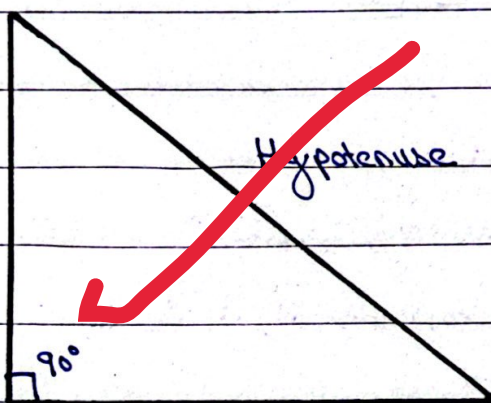 Hypotenuse
90°